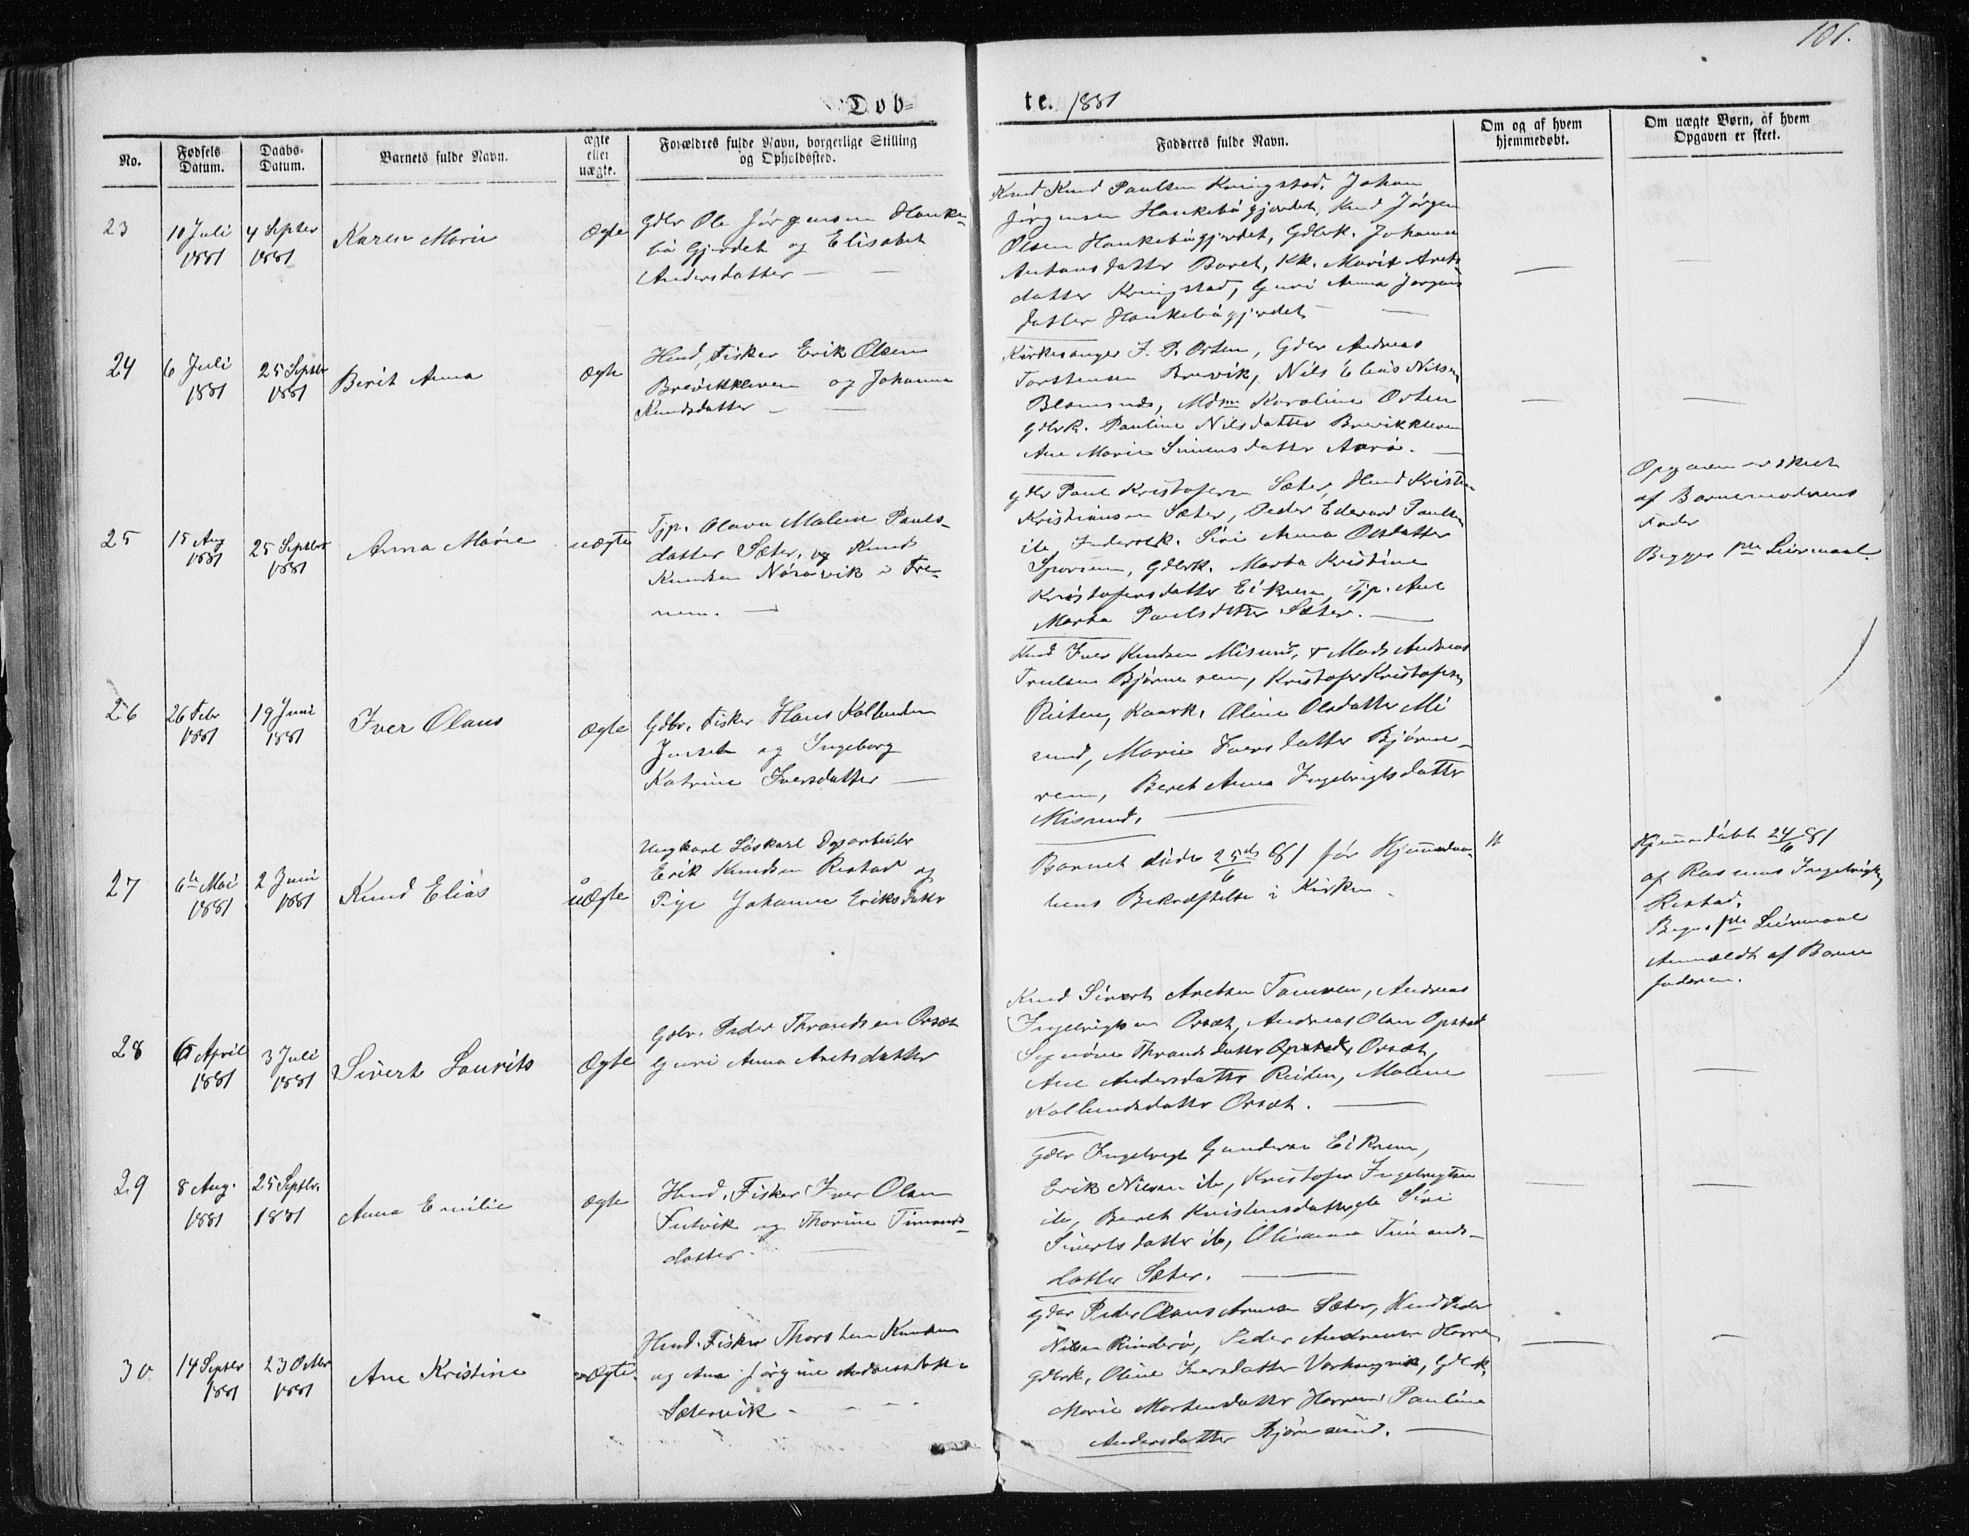 101.
Døb-
te. 1881
No.
Fødsels
Datum.
Daabs-
Datum.
Barnets fulde Navn.
ægte
eller
uægte.
Forældres fulde Navn, borgerlige Stilling
og Opholdssted.
Fadderes fulde Navn.
Om og af hvem
hjemmedøbt.
Om uægte Børn, af hvem
Opgaven er skeet.
23
10 Juli
1881
4 Septer
1881
Karen Marie
Ægte
Gdbr Ole Jørgensen Hauke-
bø Gjerdet og Elisabet
Andersdatter —
Knud Paulsen Kringstad, Johan
Jørgensen Haukebøgjerdet, Jørgen
Olsen Haukebøgjerdet, Gdbrk. Johanna
Antonsdatter Boret, KK. Marit Arets-
datter Kringstad, Guri Anna Jørgens
datter Haukebøgjerdet —
24
6 Juli
1881
25 Septbr
1881
Berit Anna
Ægte
Hmd, Fisker Erik Olsen
Brevikkleven og Johanna
Knudsdatter —
Kirkesanger J. P. Orten, Gdbr Andreas
Torstensen Brevik, Nils Elias Nilsen
Mdme Karoline Orten
Gdbrk. Pauline Nilsdatter Brevikkleven
Ane Marie Simensdatter Aarø. —
25
15 Aug
1881
25 Septbr
1881
Anna Marie
uægte
Tjp. Olava Malene Pauls-
datter Sæter, og Knud
Knudsen Nørevik i Fre-
nen. —
Gdbr Paul Kristofersen Sæter,
Kristiansen Sæter, Peder Edevard Paulsen
ib, Siri Anna Olsdatter
Gdbrk. Marta Kristine
Kristofersdatter Eikrem, Tjp. Ane
Marta Paulsdatter Sæter. —
Opgaven er skeet
af Barnemoderens
Fader
Begges 1ste Leiermaal
26
26 Febr
1881
19 Juni
1881
Iver Olaus
Ægte
Gdbr. Fisker Hans Kolbensen
og Ingeborg
Katrine Iversdatter —
Iver Knudsen Misund, Mads Andreas
Truelsen Bjørnerem, Kristofer Kristofersen
Reiten, Kaark. Oline Olsdatter Mi
sund, Marie Iversdatter Bjørne-
rem, Beret Anna Ingebrigtsdatter
Misund. —
27
6te Mai
1881
2 Juni
1881
Knud Elias
uÆgte
Ungkarl Løskarl Dagarbeider
Erik Knudsen Restad og
Pige Johanne Eriksdatter
Barnet døde 25de/6 81 før Hjemmedaa-
bens Bekræftelse i Kirken.
Hjemmedøbt 24/6 81
af Rasmus Ingebrigts
Restad.
Begges 1ste Leiermaal
Anmeldt af Barne
faderen.
28
6 April
1881
3 Juli
1881
Sivert Laurits
Ægte
Gdbr. Peder Thrandsen Orset
Guri Anna Aretsdatter
Sivert Aretsen Tomren, Andreas
Ingebrigtsen Orset, Andreas Olsen Opstad
Thrandsdatter Orset,
Ane Andersdatter Reiten, Malene
Kolbensdatter Orset. —
29
8 Aug.
1881
25 Septbr.
1881
Anna Emilie
Ægte
Hmd. Fisker Iver Olsen
og Thorine Timands-
datter. —
Gdbr Ingebrigt Gundersen Eikrem,
Erik Nilsen ib, Kristofer Ingebrigtsen
ib, Beret Kristensdatter, Siri
Sivertsdatter ib, Timands-
datter Sæter. —
30
14 Septbr
1881
23 Octbr
1881
Ane Kristine
Ægte
Hmd. Fisker Thorsten Knudsen
og Ane Jørgine
Sætervik —
Gdbr Peder Olaus Arnesen Sæter, Peder
Nilsen Rinderø, Peder Andreas
Gdbrk. Oline Iversdatter Gdbrk.
Marie Mortensdatter Pauline
Andersdatter Bjørnsund. —